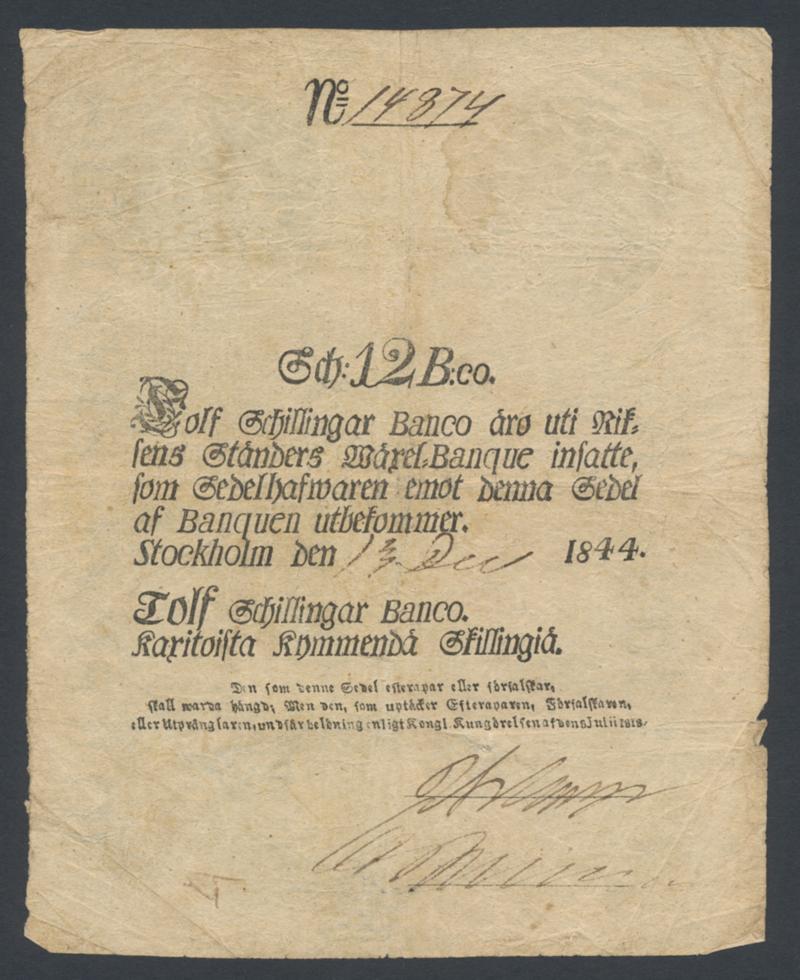 No 14874
Sch: 12 B:co.
Tolf Schillingar Banco äro uti Rik-
sens Ständers Wäxel-Banque insatte,
som Sedelhafwaren emot denna Sedel
af Banquen utbekommer.
Stockholm den 13 Dec 1844.
Tolf Schillingar Banco.
Kaxitoista Kymmendä Skillingiä.
Den som denne Sedel efterapar eller förfalskar,
skall warda hängd; Men den, som uptäcker Efteraparen, Förfalskaren,
eller Utprånglaren, undfår belöning enligt Kongl. Kungörelsen af den 8 Julii 1818.